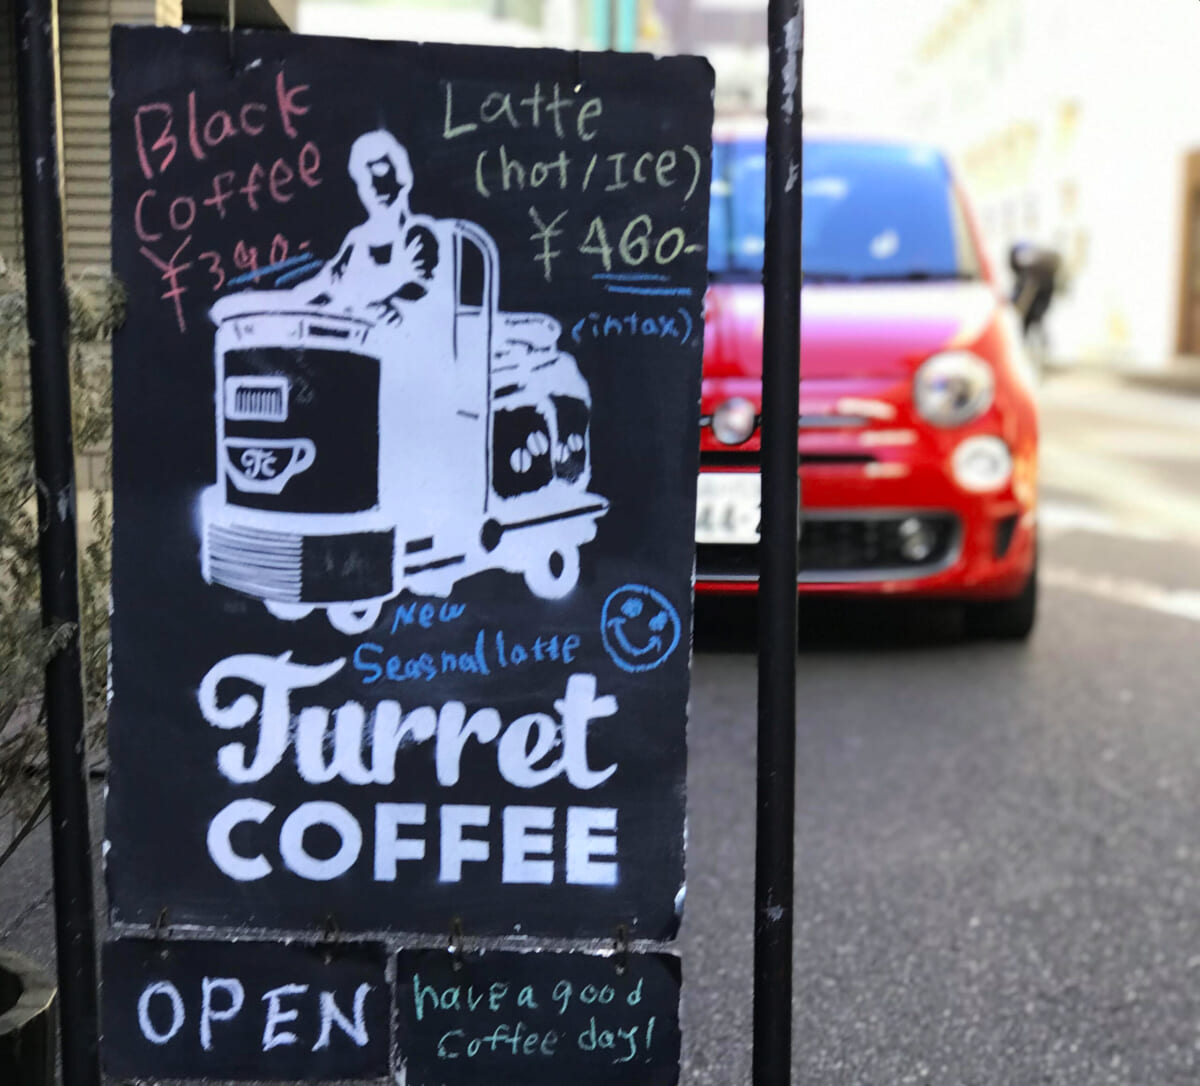 Black
Coffee
¥390-
Latte
(hot/Ice)
¥460-
(intax)
Tc
New
Seasnal latte
Turret
COFFEE
OPEN
have a good
coffee day!
44-2